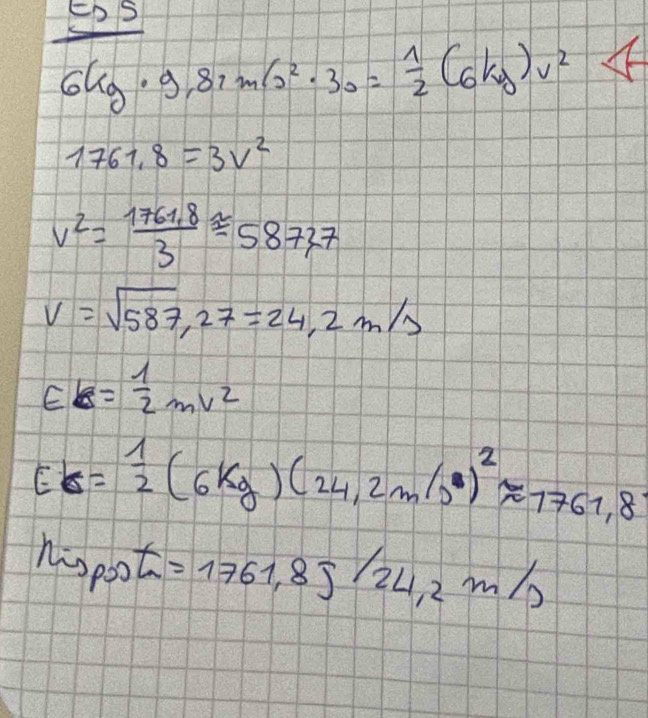 Es 5
6kg · 9,81 m/s² · 30 = 1/2 (6kg) v²
1761,8 = 3v²
v² = 1761,8/3 ≅ 587,27
v = √587,27 = 24,2 m/s
Ek = 1/2 mv²
Ek = 1/2 (6Kg) (24,2 m/s)² ≈ 1761,8
Risposta = 1761,8 J / 24,2 m/s